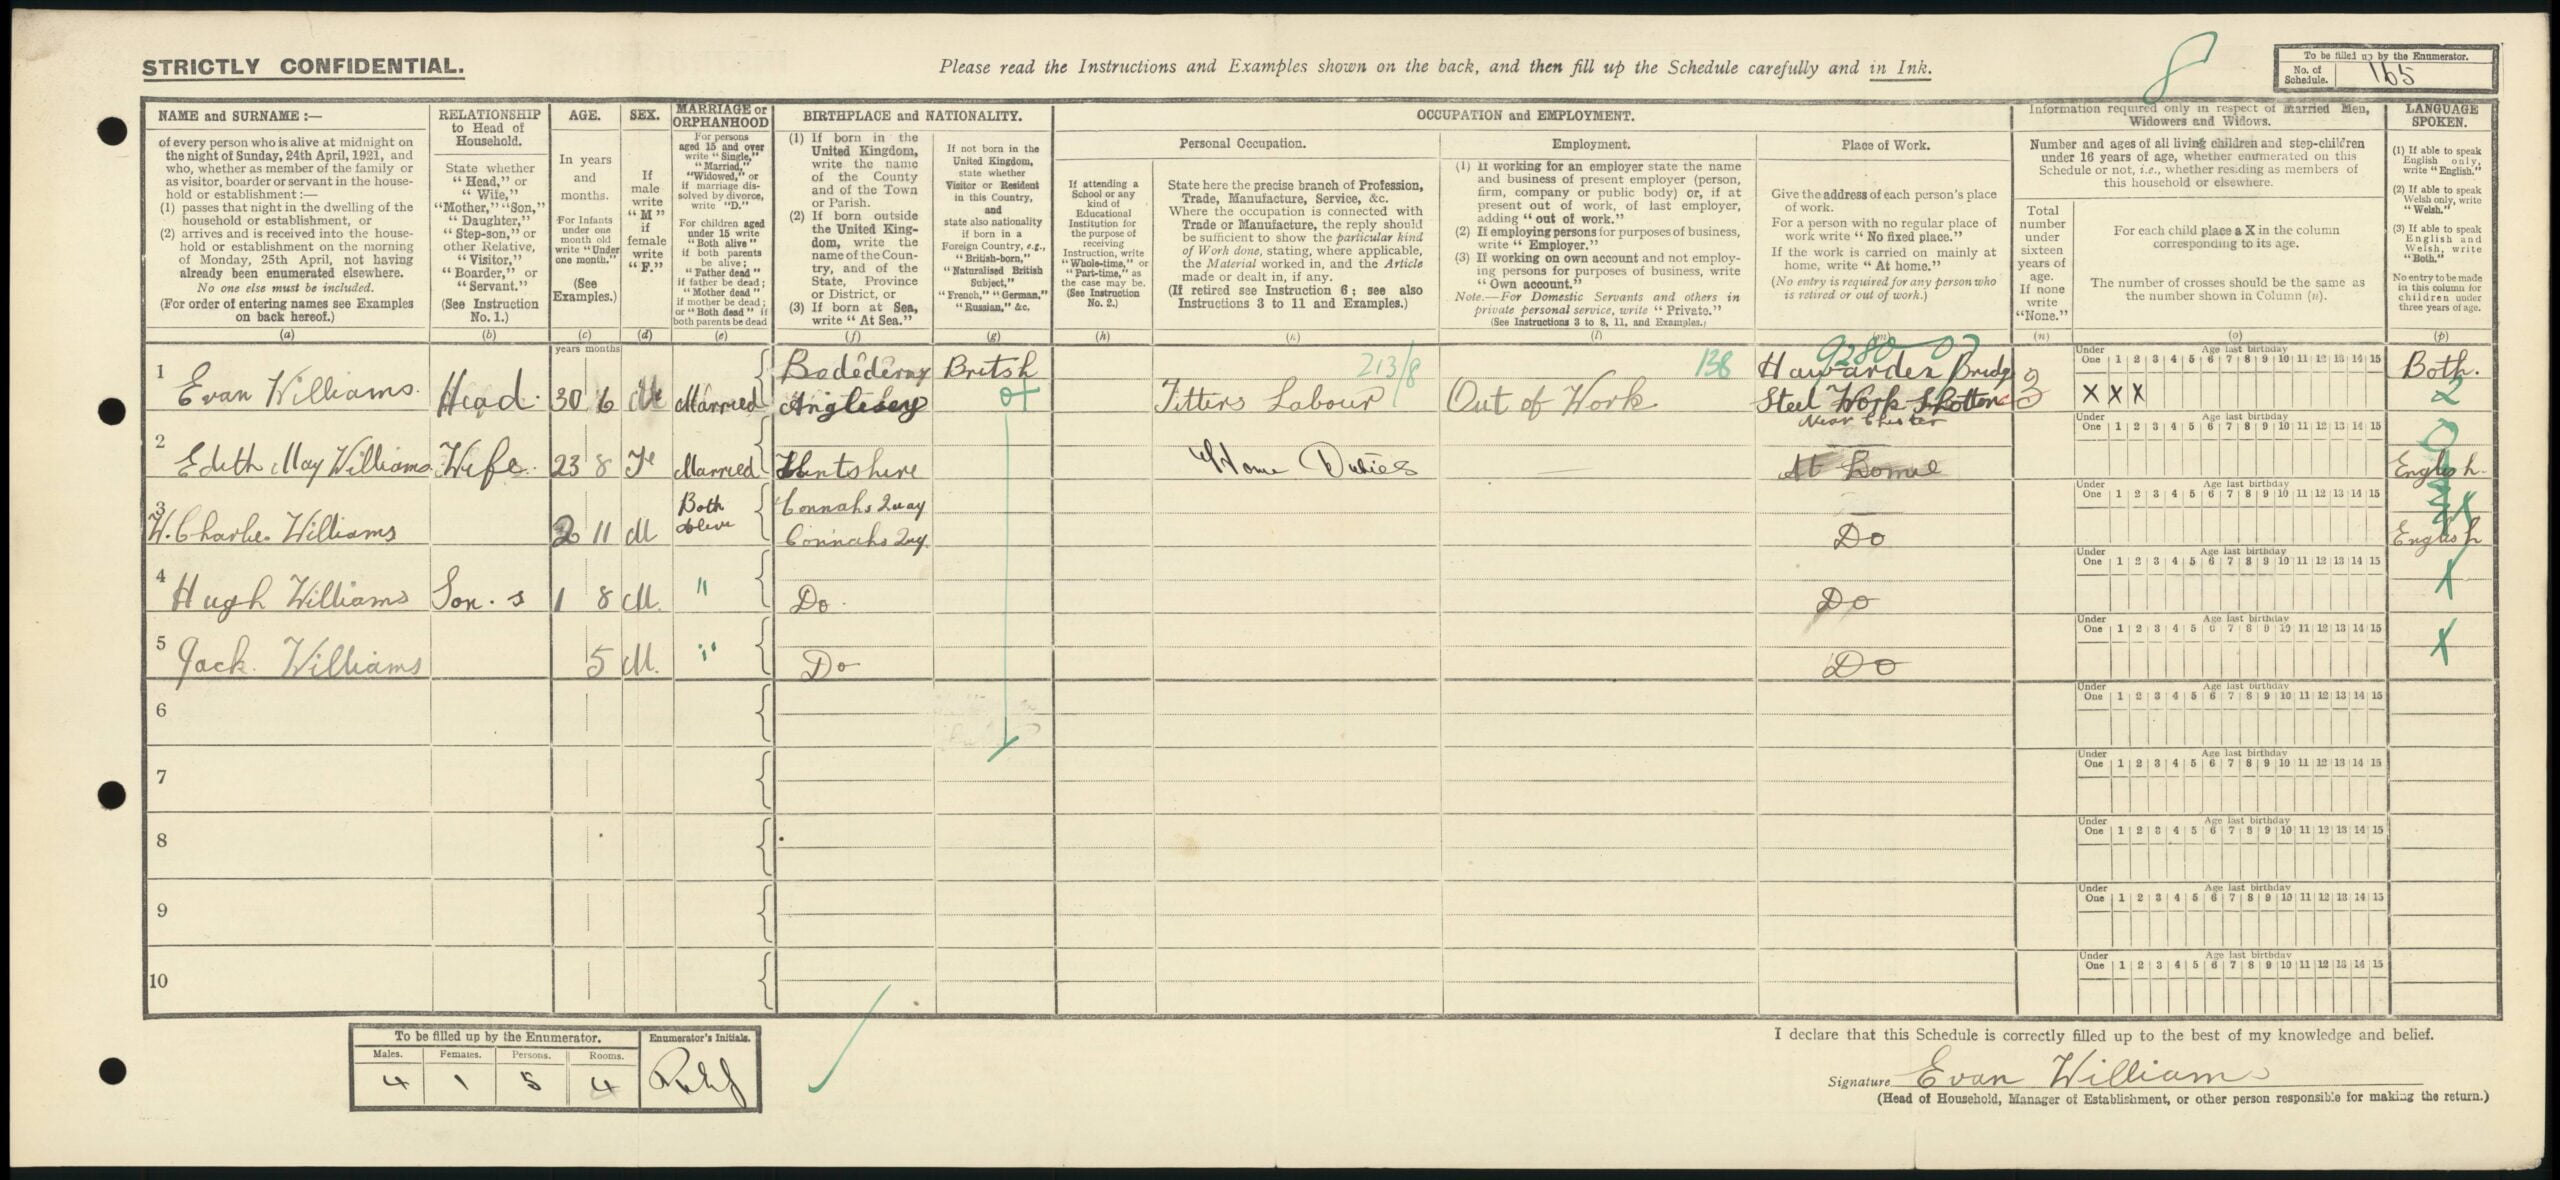 STRICTLY CONFIDENTIAL.
Please read the Instructions and Examples shown on the back, and then fill up the Schedule carefully and in Ink.
8
To be filled up by the Enumerator.
No. of Schedule. 165
NAME and SURNAME :—
of every person who is alive at midnight on
the night of Sunday, 24th April, 1921, and
who, whether as member of the family or
as visitor, boarder or servant in the house-
hold or establishment :—
(1) passes that night in the dwelling of the
household or establishment, or
(2) arrives and is received into the house-
hold or establishment on the morning
of Monday, 25th April, not having
already been enumerated elsewhere.
No one else must be included.
(For order of entering names see Examples
on back hereof.)
(a)
RELATIONSHIP
to Head of
Household.
State whether
"Head," or
"Wife,"
"Mother," "Son,"
"Daughter,"
"Step-son," or
other Relative,
"Visitor,"
"Boarder," or
"Servant."
(See Instruction
No. 1.)
(b)
AGE.
In years
and
months.
For Infants
under one
month old
write "Under
one month."
(See
Examples.)
(c)
SEX.
If
male
write
"M"
if
female
write
"F."
(d)
MARRIAGE or
ORPHANHOOD
For persons
aged 15 and over
write "Single,"
"Married,"
"Widowed," or
if marriage dis-
solved by divorce,
write "D."
For children aged
under 15 write
"Both alive"
if both parents
be alive;
"Father dead"
if father be dead;
"Mother dead"
if mother be dead;
or "Both dead" if
both parents be dead
(e)
BIRTHPLACE and NATIONALITY.
(1) If born in the
United Kingdom,
write the name
of the County
and of the Town
or Parish.
(2) If born outside
the United King-
dom, write the
name of the Coun-
try, and of the
State, Province
or District, or
(3) If born at Sea,
write "At Sea."
(f)
If not born in the
United Kingdom,
state whether
Visitor or Resident
in this Country,
and
state also nationality
if born in a
Foreign Country, e.g.,
"British-born,"
"Naturalised British
Subject,"
"French," "German,"
"Russian," &c.
(g)
OCCUPATION and EMPLOYMENT.
If attending a
School or any
kind of
Educational
Institution for
the purpose of
receiving
Instruction, write
"Whole-time," or
"Part-time," as
the case may be.
(See Instruction
No. 2.)
(h)
Personal Occupation.
State here the precise branch of Profession,
Trade, Manufacture, Service, &c.
Where the occupation is connected with
Trade or Manufacture, the reply should
be sufficient to show the particular kind
of Work done, stating, where applicable,
the Material worked in, and the Article
made or dealt in, if any.
(If retired see Instruction 6; see also
Instructions 3 to 11 and Examples.)
Employment.
(1) If working for an employer state the name
and business of present employer (person,
firm, company or public body) or, if at
present out of work, of last employer,
adding "out of work."
(2) If employing persons for purposes of business,
write "Employer."
(3) If working on own account and not employ-
ing persons for purposes of business, write
"Own account."
Note.—For Domestic Servants and others in
private personal service, write "Private."
(See Instructions 3 to 8, 11, and Examples.)
(l)
Place of Work.
Give the address of each person's place
of work.
For a person with no regular place of
work write "No fixed place."
If the work is carried on mainly at
home, write "At home."
(No entry is required for any person who
is retired or out of work.)
(m)
Information required only in respect of Married Men,
Widowers and Widows.
Number and ages of all living children and step-children
under 16 years of age, whether enumerated on this
Schedule or not, i.e., whether residing as members of
this household or elsewhere.
Total
number
under
sixteen
years of
age.
If none
write
"None."
(n)
For each child place a X in the column
corresponding to its age.
The number of crosses should be the same as
the number shown in Column (n).
(o)
LANGUAGE
SPOKEN.
(1) If able to speak
English only,
write "English."
(2) If able to speak
Welsh only, write
"Welsh."
(3) If able to speak
English and
Welsh, write
"Both."
No entry to be made
in this column for
children under
three years of age.
(p)
years months
1 Evan Williams. Head. 30 6 Me Married Bodederny Anglesey British 213/8 Fitters Labour Out of Work 138 9280 07 Hawarden Bridge Steel Work Shotton Near Chester 3 Both. 2
Under One Age last birthday 1 2 3 4 5 6 7 8 9 10 11 12 13 14 15
X X X
2 Edith May Williams Wife. 23 8 Fe Married Flintshire Home Duties — At home English.
Under One Age last birthday 1 2 3 4 5 6 7 8 9 10 11 12 13 14 15
3 W. Charles Williams 2 11 M Both Alive Connahs Quay Connahs Quay. Do English
Under One Age last birthday 1 2 3 4 5 6 7 8 9 10 11 12 13 14 15
4 Hugh Williams Son. s 1 8 M. " Do. Do X
Under One Age last birthday 1 2 3 4 5 6 7 8 9 10 11 12 13 14 15
5 Jack. Williams 5 M. " Do Do X
Under One Age last birthday 1 2 3 4 5 6 7 8 9 10 11 12 13 14 15
6
Under One Age last birthday 1 2 3 4 5 6 7 8 9 10 11 12 13 14 15
7
Under One Age last birthday 1 2 3 4 5 6 7 8 9 10 11 12 13 14 15
8
Under One Age last birthday 1 2 3 4 5 6 7 8 9 10 11 12 13 14 15
9
Under One Age last birthday 1 2 3 4 5 6 7 8 9 10 11 12 13 14 15
10
Under One Age last birthday 1 2 3 4 5 6 7 8 9 10 11 12 13 14 15
To be filled up by the Enumerator.
Males. Females. Persons. Rooms.
4 1 5 4
Enumerator's Initials.
I declare that this Schedule is correctly filled up to the best of my knowledge and belief.
Signature Evan Williams
(Head of Household, Manager of Establishment, or other person responsible for making the return.)